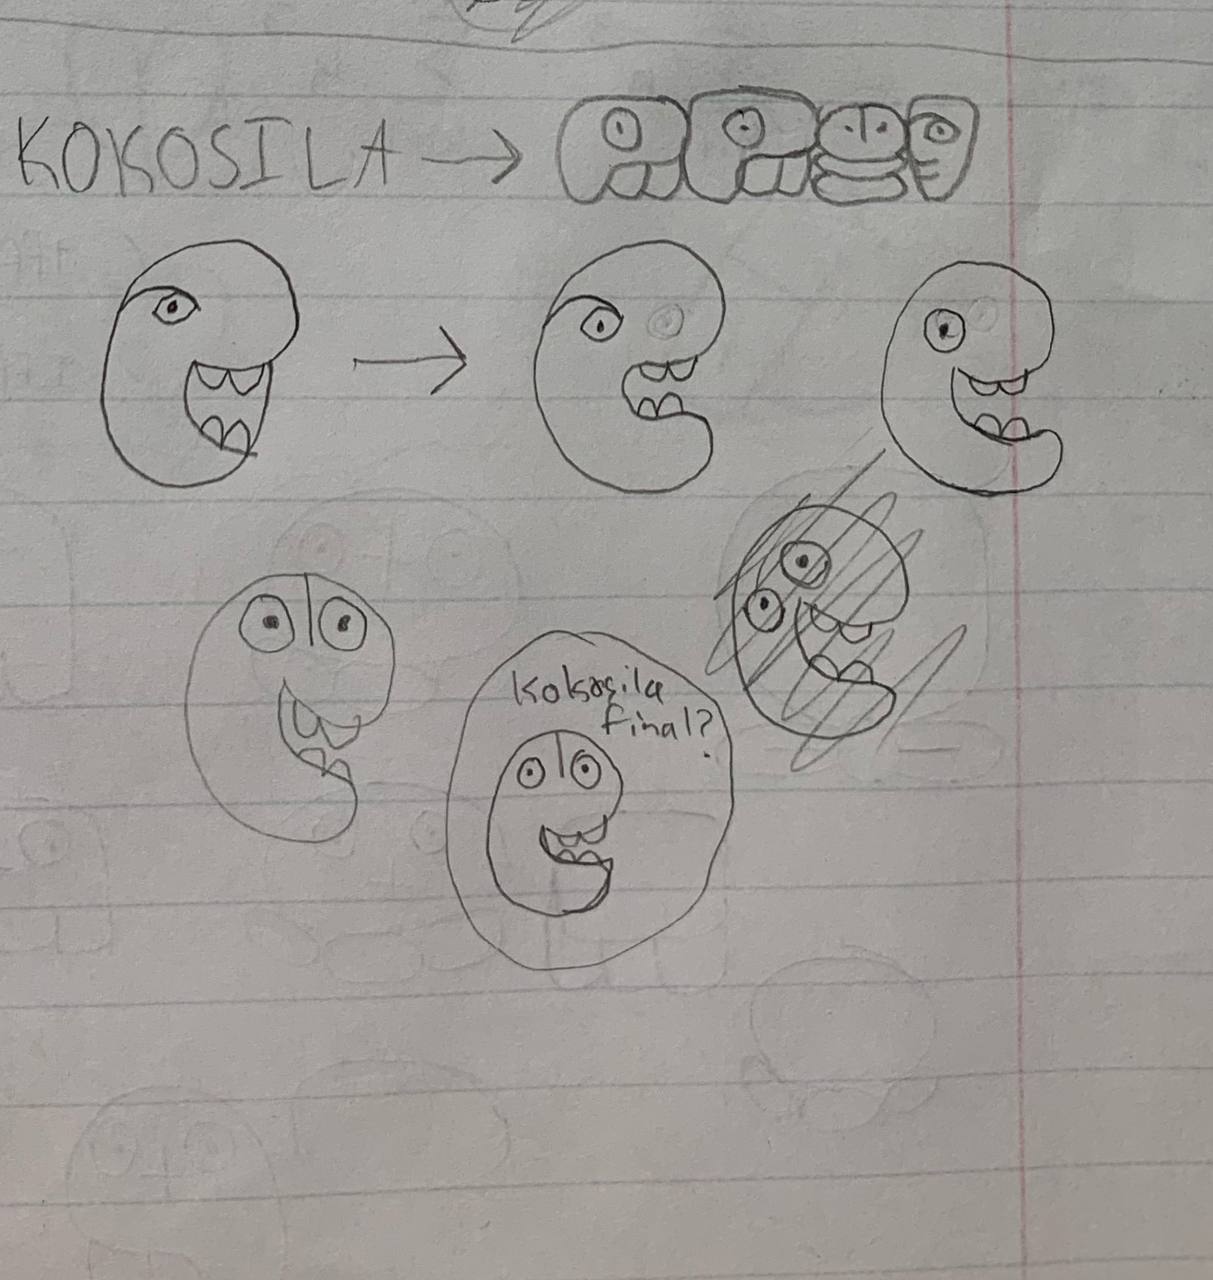 KOKOSILA
Kokosila
final?